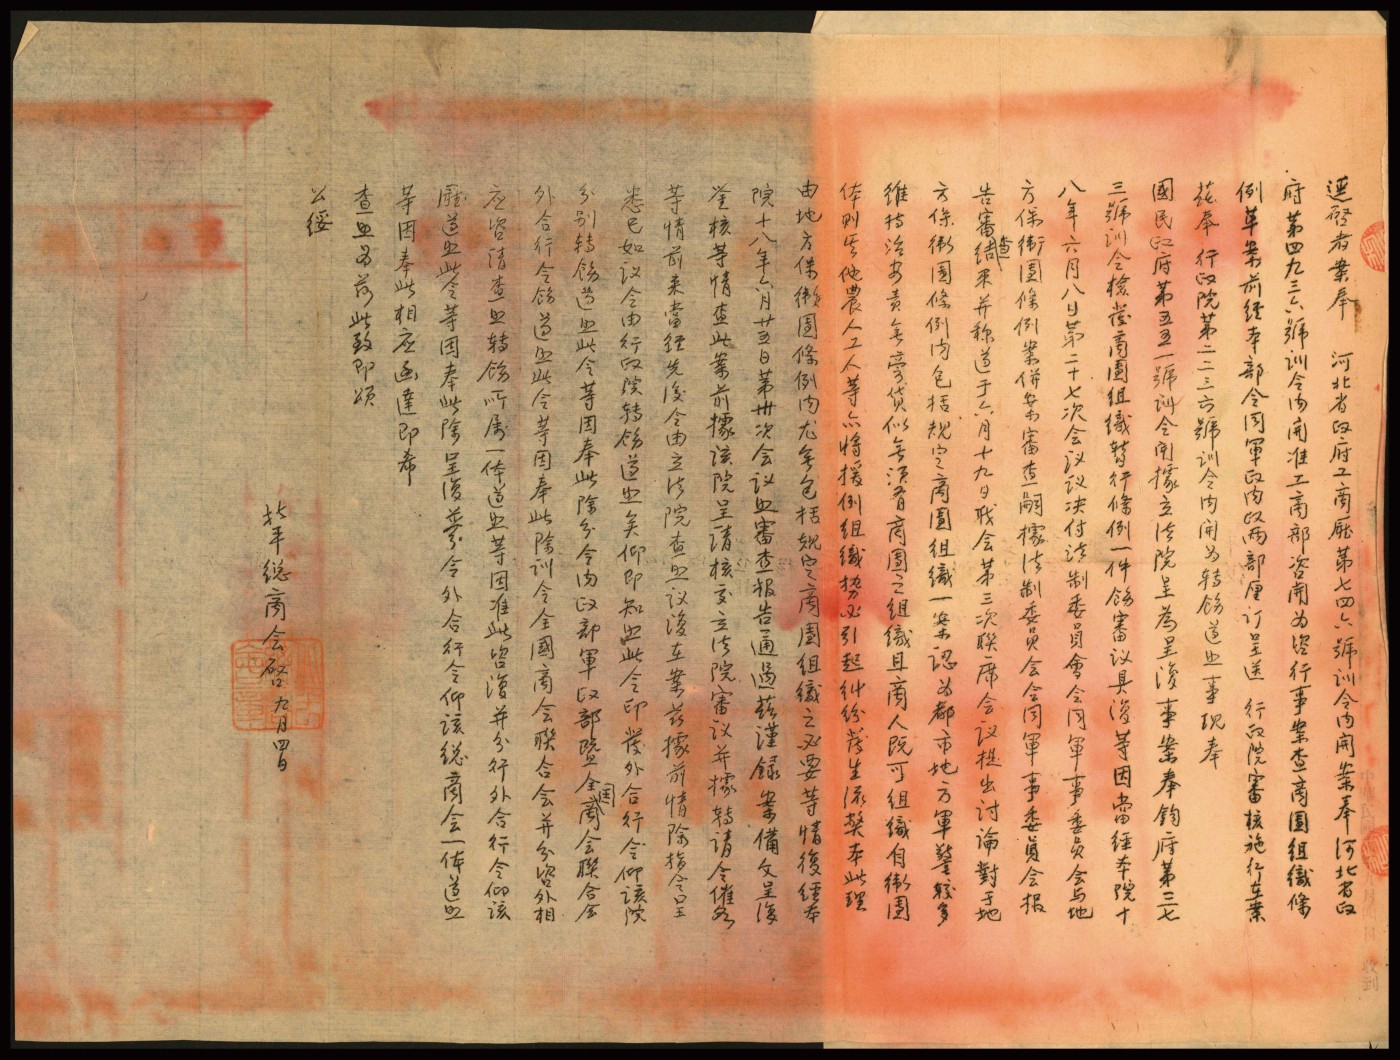 逕啓者案奉 河北省政府工商廳第七四六號訓令內開案奉河北省政
府第四九三六號訓令內開准工商部咨開为咨行事案查商團組織條
例草案前經本部会同軍政內政两部厘订呈送 行政院審核施行在案
茲奉 行政院第二二三六號训令内開为转飭遵照事現奉
國民政府第五五一號训令開據立法院呈為呈復事案奉鈞府第三七
三號训令檢发商團組織暫行條例一件飭審议具復等因當經本院十
八年六月八日第二十七次会议议决付法制委員會会同軍事委员会与地
方保衛團條例案併案審查嗣據法制委員会会同軍事委員会报
告審查結果并称遵于六月十九日我会第三次联席会议提出讨論對于地
方保衛團條例內包括規定商團組織一案認为都市地方軍警較多
維持治安责無旁貸似無须有商團之組織且商人既可組織自衛團
体則其他農人工人等亦将援例組織势必引起糾纷发生流弊本此理
由地方保衛團條例内尤無包括規定商團組織之必要等情復經本
院十八年六月廿五日第卅次会议照審查报告通過茲謹錄案備文呈復
鉴核等情查此案前據該院呈請核交立法院審议并據转请令催各
等情前来當經先後令由立法院查照议復在案茲據前情除指令呈
悉已如议令由行政院转飭遵照矣仰即知照此令印发外合行令仰該院
分别转飭遵照此令等因奉此除分令内政部軍政部暨全國商会聯合会
外合行令飭遵照此令等因奉此除训令全國商会聯合会并分咨外相
应咨请查照转飭所属一体遵照等因准此咨復并分行外合行令仰該
廳遵照此令等因奉此除呈復并分令外合行令仰該總商会一体遵照
等因奉此相应函達即希
查照为荷此致即頌
公綏
北平總商会啓九月四日